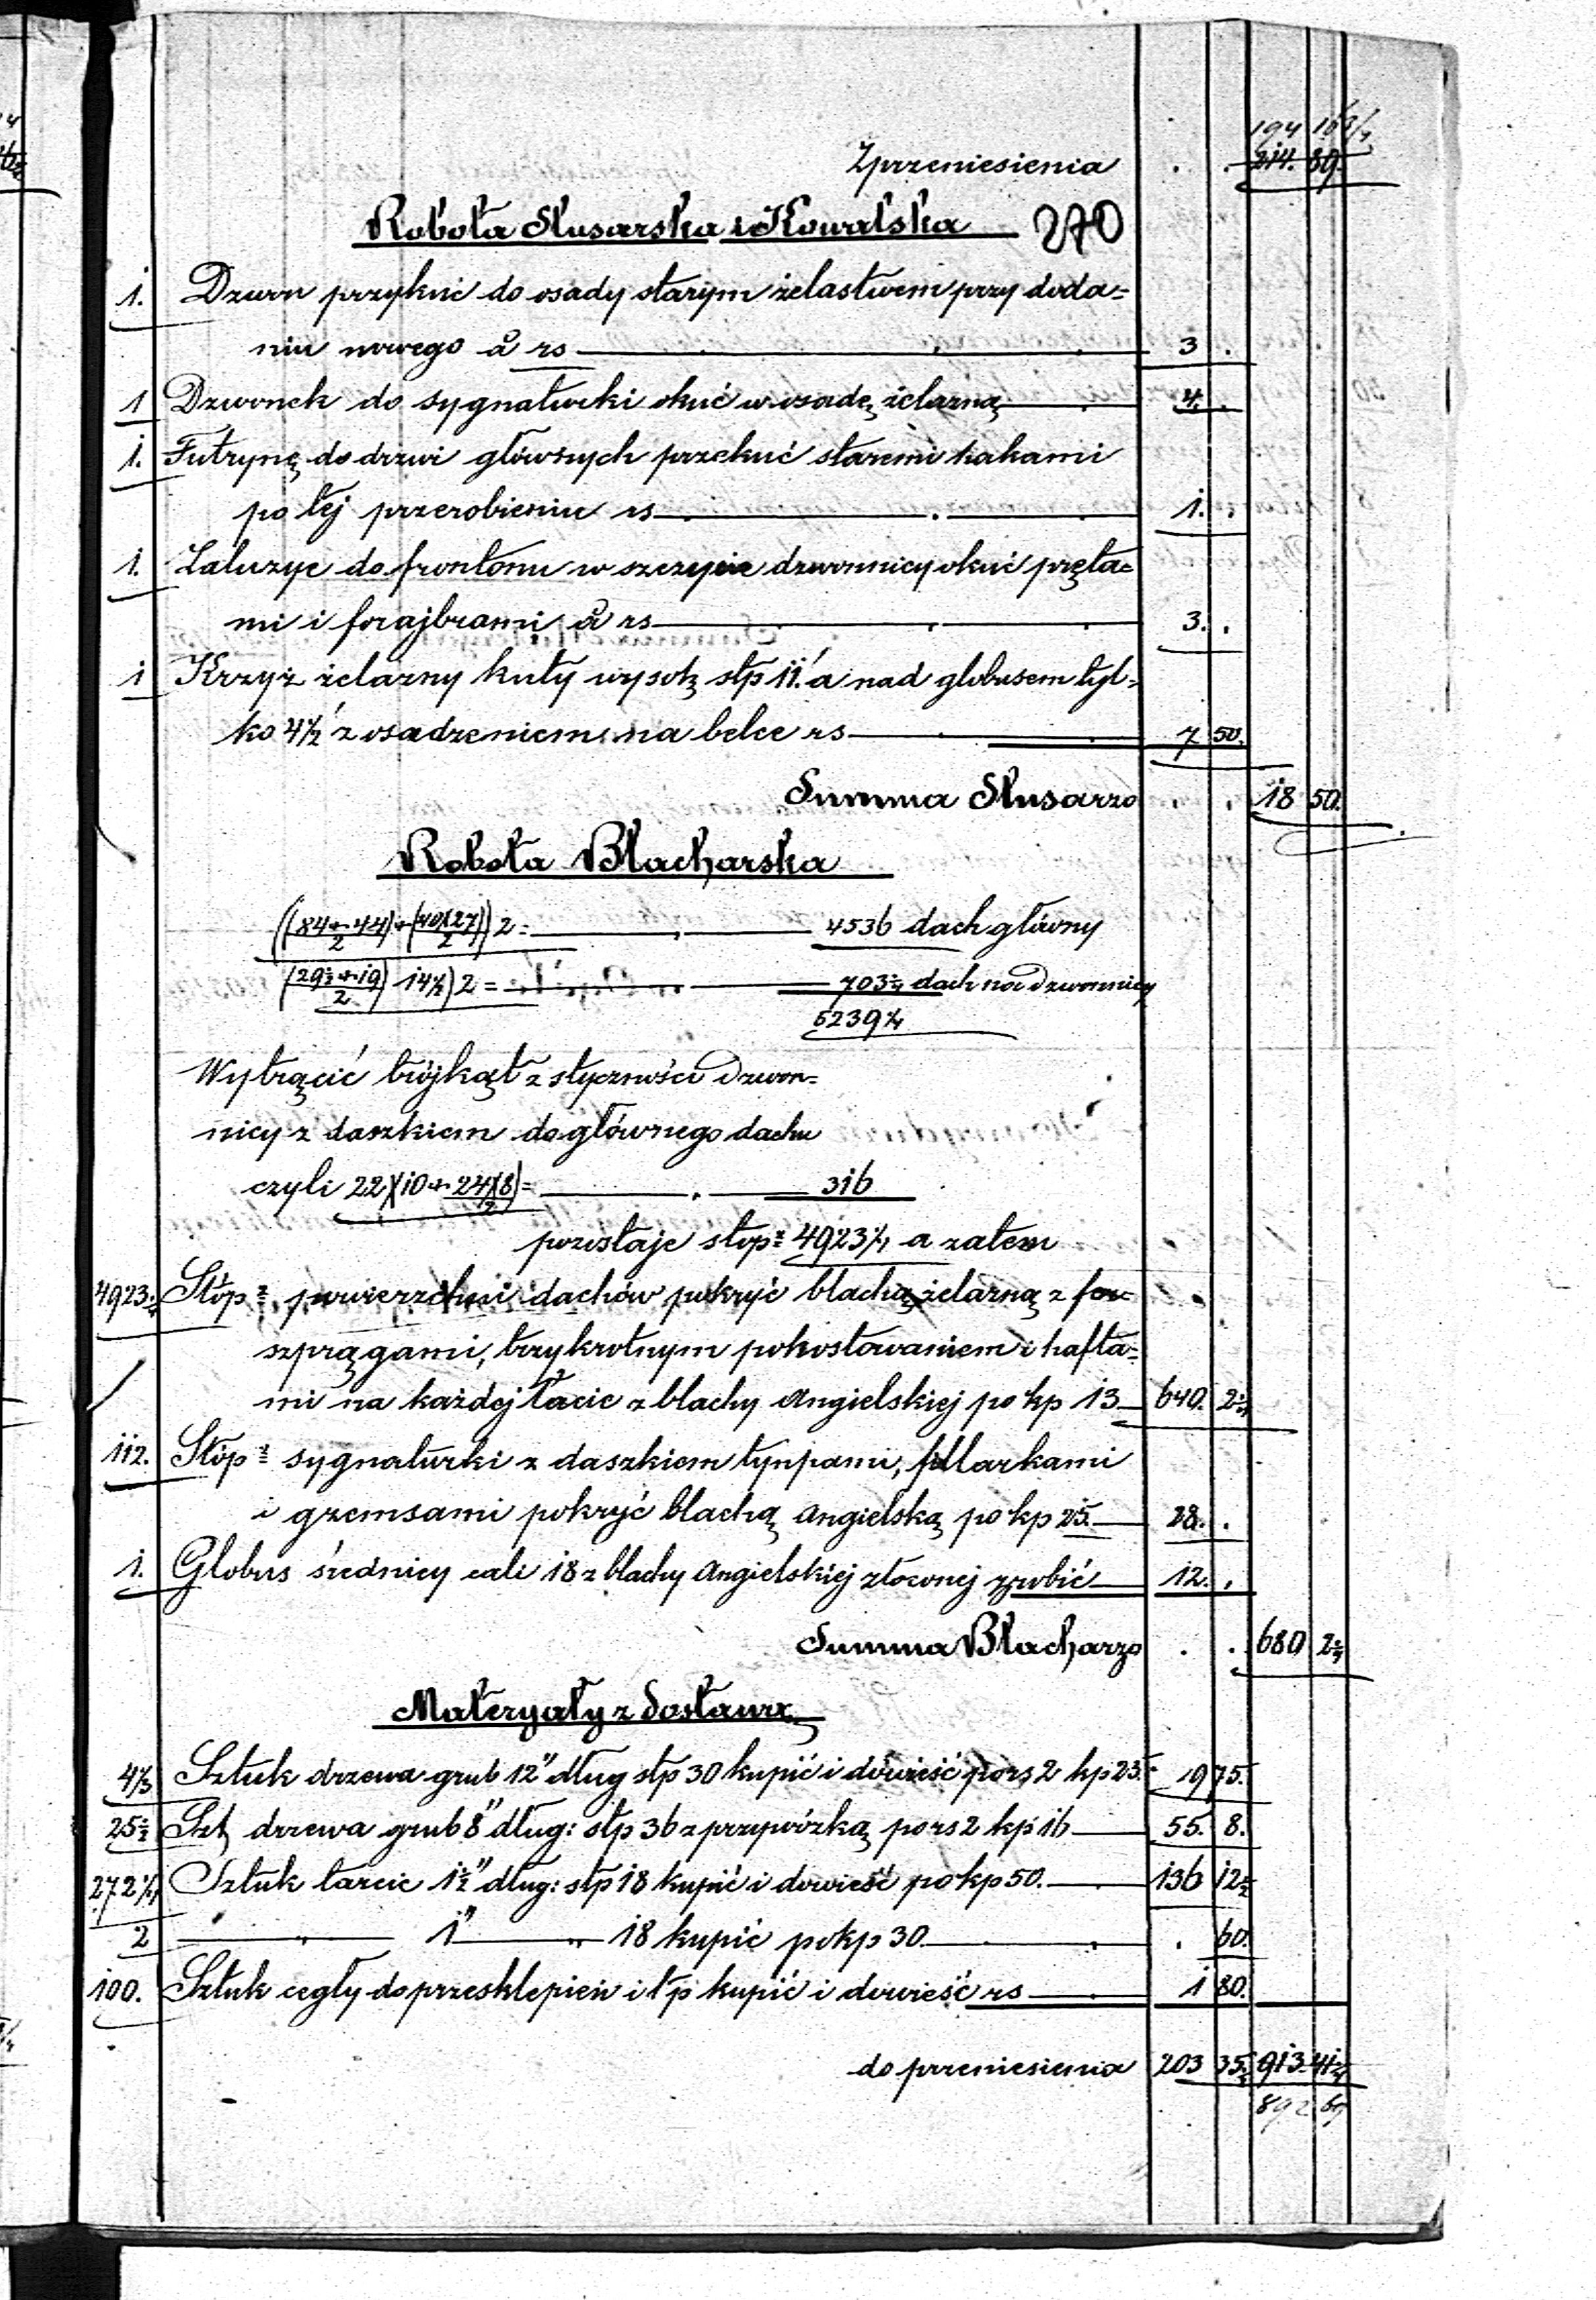 194 16 3/4
Z przeniesienia . . 214. 89.
Robota Slusarska i Kowalska 270
1. Dzwon przykuć do osady starym żelastwem przy doda=
niu nowego à rs 3 .
1 Dzwonek do sygnaturki okuć w osadę żelazną 4. .
1. Futrynę do drzwi głównych przekuć staremi hakami
po tej przerobieniu rs 1. .
1. Żaluzye do frontonu w szczycie dzwonnicy okuć pręta=
mi i forajbrami à rs 3. .
1 Krzyż żelazny kuty wysok stp 11' a nad globusem tyl=
ko 4 1/2' z osadzeniem na belce rs 7 50.
Summa Slusarza . . 18 50.
Robota Blacharska
((84+44)/2)+(40)(27)/2))2= 4536 dach główny
((29 1/2+19)/2) 14 1/2)2= 703 1/4 dach na Dzwonnicy
5239 1/4
Wytrącić trójkąt z styczności Dzwon=
nicy z daszkiem do głównego dachu
czyli 22)(10+24)(8)/2= 316
pozostaje stop² 4923 1/4 a zatem
4923 1/4 Stóp² powierzchni dachów pokryć blachą żelazną z fer=
szprągami, trzykrotnym pokostowaniem i hafta=
mi na każdej łacie z blachy Angielskiej po kp 13 640. 2 1/4
112. Stóp² sygnaturki z daszkiem tynpami, fillarkami
i gzemsami pokryć blachą angielską po kp 25. 28. .
1. Globus średnicy cali 18 z blachy Angielskiej złoconej zrobić 12. .
Summa Blacharza . . 680 2 1/4
Materyały z dostawą
4 1/3 Sztuk drzewa grub 12" dług stp 30 kupić i dowieść po rs 2 kp 25. 19 75.
25 1/2 Szt drzewa grub 8" dług: stp 36 z przywózką po rs 2 kp 16 55. 8.
272 1/4 Sztuk tarcic 1 1/2" dług: stp 18 kupić i dowieść po kp 50. 136 12 1/2
2 " 1" " 18 kupić po kp 30 . 60.
100. Sztuk cegły do przesklepień i t p kupić i dowieść rs 1 80.
do przeniesienia 203 35 1/2 913. 41 1/4
892 69